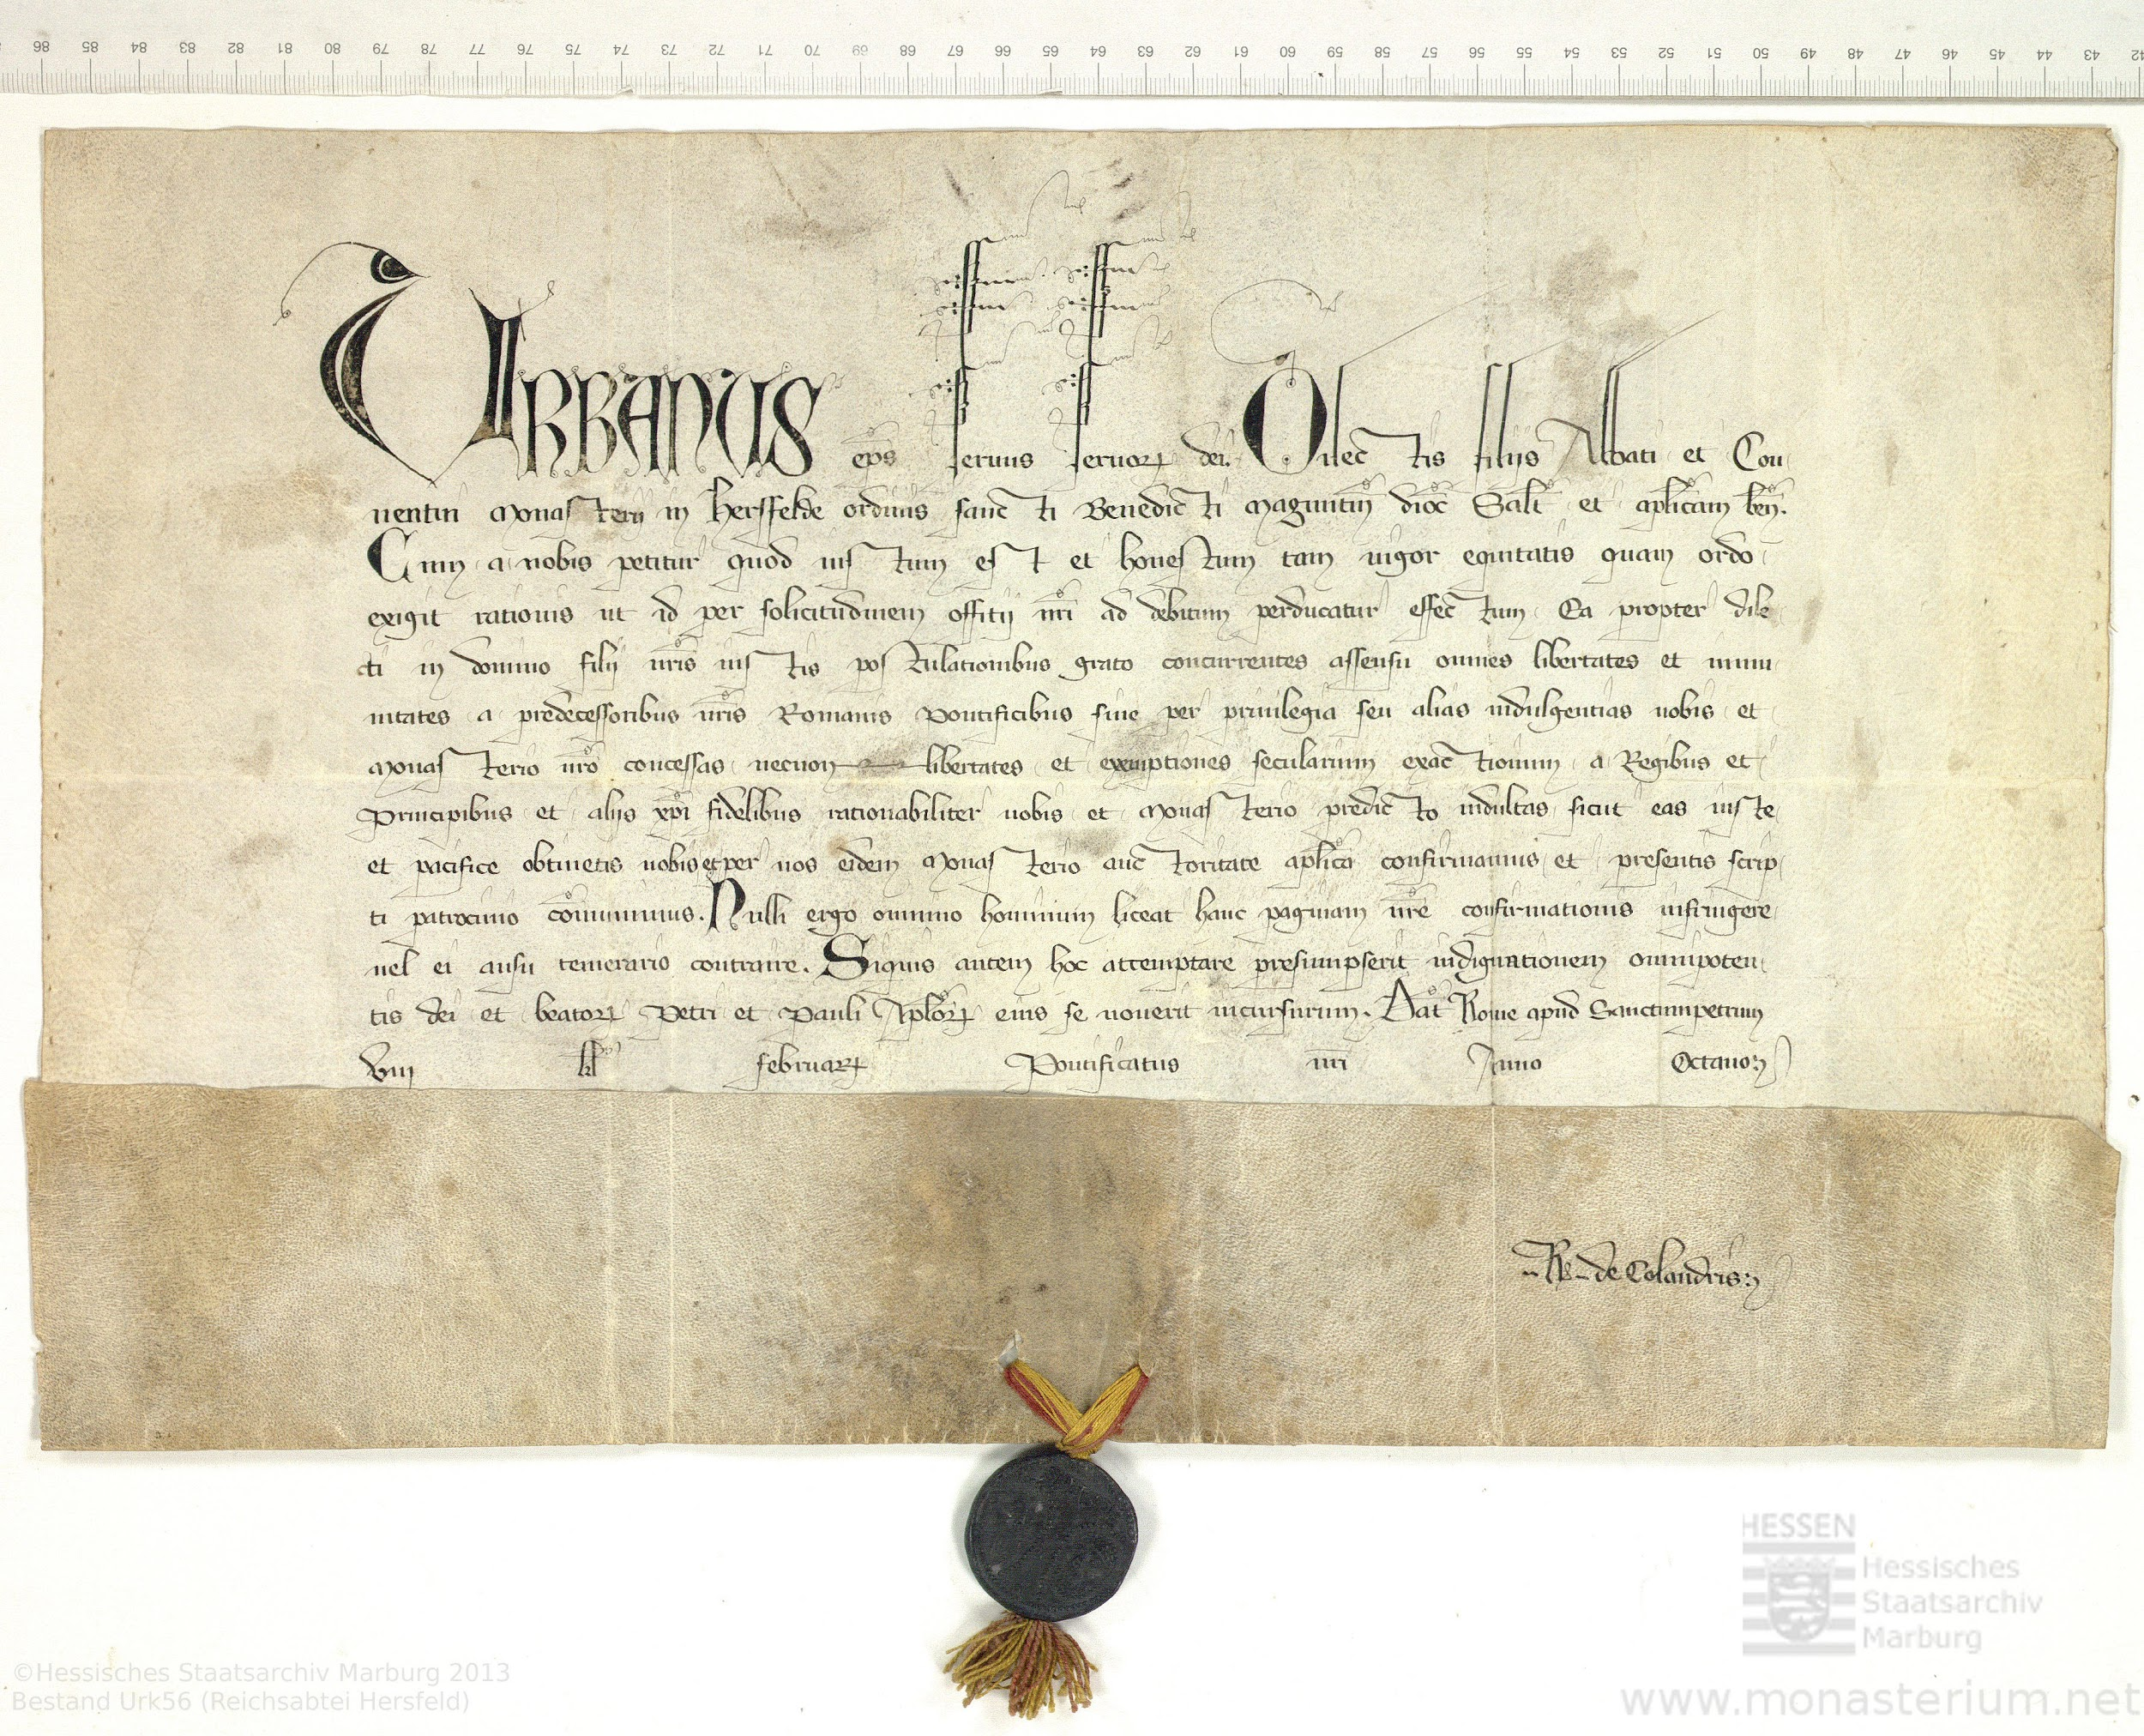 86 85 84 83 82 81 80 79 78 77 76 75 74 73 72 71 70 69 68 67 66 65 64 63 62 61 60 59 58 57 56 55 54 53 52 51 50 49 48 47 46 45 44 43 42
URBANUS ep̄s seruus seruoꝝ dei. Dilectis filijs Abbati et Con
uentui Monasterij in Hersfelde ordinis sancti Benedicti Maguntin̄ dioc̄ Salt̄ et apl̄icam ben̄.
Cum a nobis petitur quod iustum est et honestum tam uigor equitatis quam ordo
exigit rationis ut id per solicitudinem offitij nr̄i ad debitum perducatur effectum Ea propter dile
cti in domino filij ur̄is iustis postulationibus grato concurrentes assensu omnes libertates et immu
nitates a predecessoribus nr̄is Romanis Pontificibus siue per priuilegia seu alias indulgentias uobis et
Monasterio ur̄o concessas necnon libertates et exemptiones secularium exactionum a Regibus et
Principibus et alijs xp̄i fidelibus rationabiliter uobis et Monasterio predicto indultas sicut eas iuste
et pacifice obtinetis uobis et per uos eidem Monasterio auctoritate apl̄ica confirmamus et presentis scrip
ti patrocinio com̄unimus. Nulli ergo omnino hominum liceat hanc paginam nr̄e confirmationis infringere
uel ei ausu temerario contraire. Siquis autem hoc attemptare presumpserit indignationem omnipoten
tis dei et beatoꝝ Petri et Pauli Apl̄oꝝ eius se nouerit incursurum. Dat̄ Rome apud Sanctumpetrum
viij kl̄ februaꝝ Pontificatus nr̄i Anno Octauo
de Colandris
HESSEN
Hessisches
Staatsarchiv
Marburg
©Hessisches Staatsarchiv Marburg 2013
Bestand Urk56 (Reichsabtei Hersfeld)
www.monasterium.net